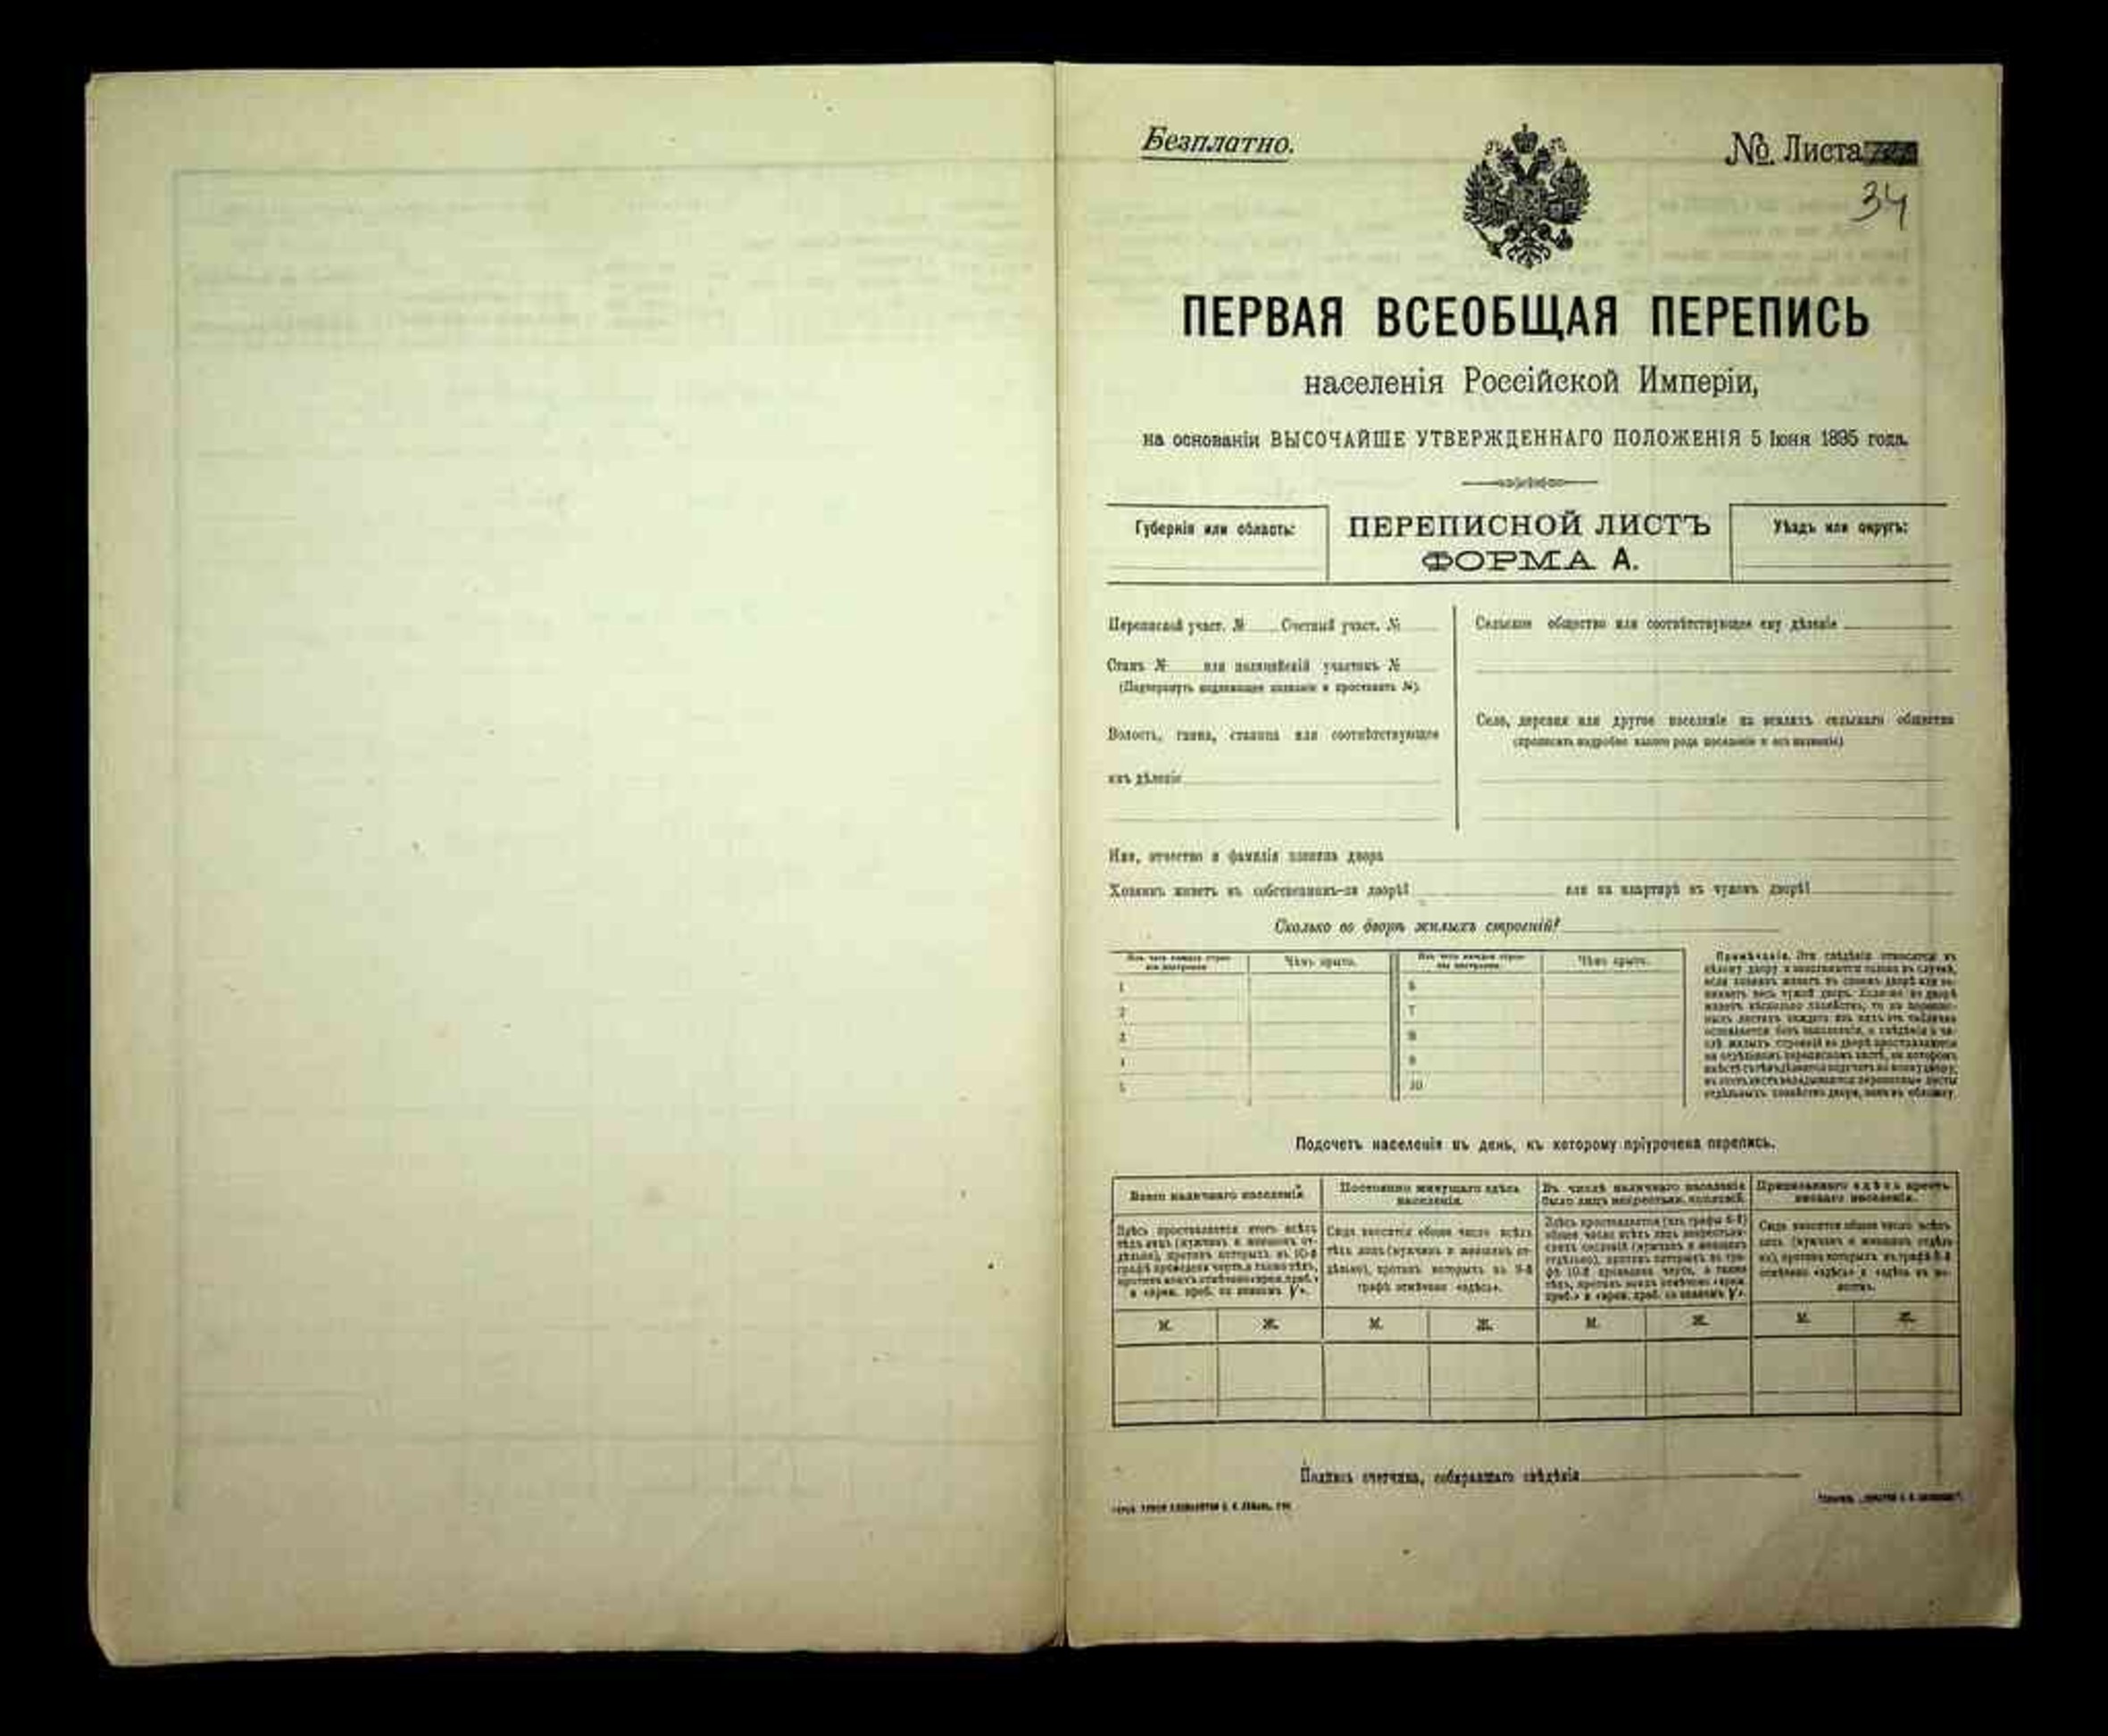 Безплатно.
№ Листа
34
ПЕРВАЯ ВСЕОБЩАЯ ПЕРЕПИСЬ
населенія Россійской Имперіи,
на основаніи ВЫСОЧАЙШЕ УТВЕРЖДЕННАГО ПОЛОЖЕНІЯ 5 Іюня 1895 года.
Губернія или область:
ПЕРЕПИСНОЙ ЛИСТЪ
ФОРМА А.
Уѣздъ или округъ:
Переписной участ. № Счетный участ. №
Станъ № или полицейскій участокъ №
(Подчеркнуть подлежащее названіе и проставить №).
Волость, гмина, станица или соотвѣтствующее
имъ дѣленіе
Сельское общество или соотвѣтствующее ему дѣленіе
Село, деревня или другое поселеніе на земляхъ сельскаго общества
(прописать подробно какого рода поселеніе и его названіе)
Имя, отчество и фамилія хозяина двора
Хозяинъ живетъ въ собственномъ-ли дворѣ? или на квартирѣ въ чужомъ дворѣ?
Сколько во дворѣ жилыхъ строеній?
Изъ чего каждое строе-
ніе построено
Чѣмъ крыто.
Изъ чего каждое строе-
ніе построено
Чѣмъ крыто.
1
2
3
4
5
6
7
8
9
10
Примѣчаніе. Эти свѣдѣнія относятся къ
цѣлому двору и
если хозяинъ живетъ въ своемъ дворѣ или за-
нимаетъ весь чужой дворъ.
живетъ нѣсколько хозяйствъ, то на перепис-
ныхъ листахъ каждаго изъ нихъ эта табличка
оставляется безъ заполненія, а свѣдѣнія о чи-
слѣ жилыхъ строеній во дворѣ проставляются
на отдѣльномъ переписномъ листѣ, на которомъ
въ этотъ листъ вкладываются переписные листы
отдѣльныхъ хозяйствъ двора, какъ въ обложку.
Подсчетъ населенія въ день, къ которому пріурочена перепись.
Всего наличнаго населенія
Здѣсь проставляется итогъ всѣхъ
тѣхъ лицъ (мужчинъ и женщинъ от-
дѣльно), противъ которыхъ въ 10-й
графѣ проведена черта, а также тѣхъ,
противъ коихъ отмѣчено «врем. преб.»
и «врем. преб. со знакомъ V».
Постоянно живущаго здѣсь
населенія.
Сюда вносится общее число всѣхъ
тѣхъ лицъ (мужчинъ и женщинъ от-
дѣльно), противъ которыхъ въ 9-й
графѣ отмѣчено «здѣсь».
Въ числѣ наличнаго населенія
было лицъ некрестьян. сословій.
Здѣсь проставляется (изъ графы 4-й)
общее число всѣхъ лицъ некрестьян-
скихъ сословій (мужчинъ и женщинъ
отдѣльно), противъ которыхъ въ гра-
фѣ 10-й проведена черта, а также
тѣхъ, противъ коихъ отмѣчено «врем.
преб.» и «врем. преб. со знакомъ V».
Приписаннаго здѣсь кресть-
янскаго населенія.
Сюда вносится общее число всѣхъ
лицъ (мужчинъ и женщинъ отдѣль-
но), противъ которыхъ въ графѣ 8-й
отмѣчено «здѣсь» и «здѣсь въ во-
лости».
М. Ж. М. Ж. М. Ж. М. Ж.
Подпись счетчика, собиравшаго свѣдѣнія